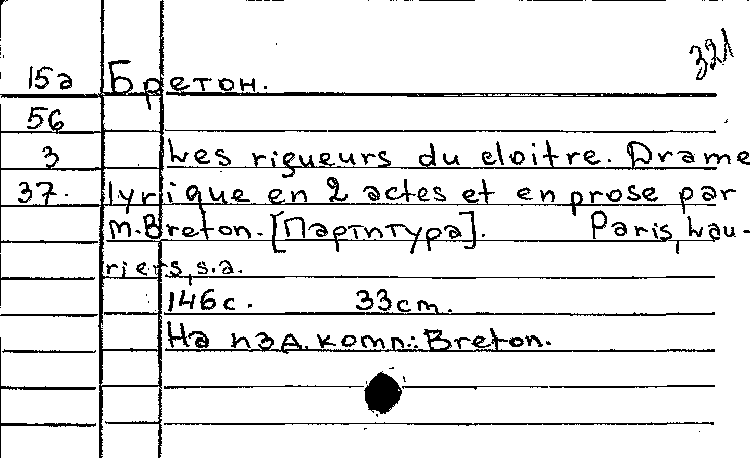 321
15а Бретон.
56
3 Les rigueurs du cloitre. Drame
37. lyrique en 2 actes et en prose par
M. Breton. [Партитура]. Paris, Lau-
riers, s.a.
146с. 33см.
На изд. комп.: Breton.